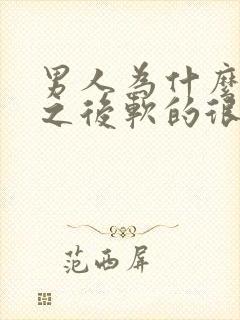 男人為什麼
之後軟的很
范西屏